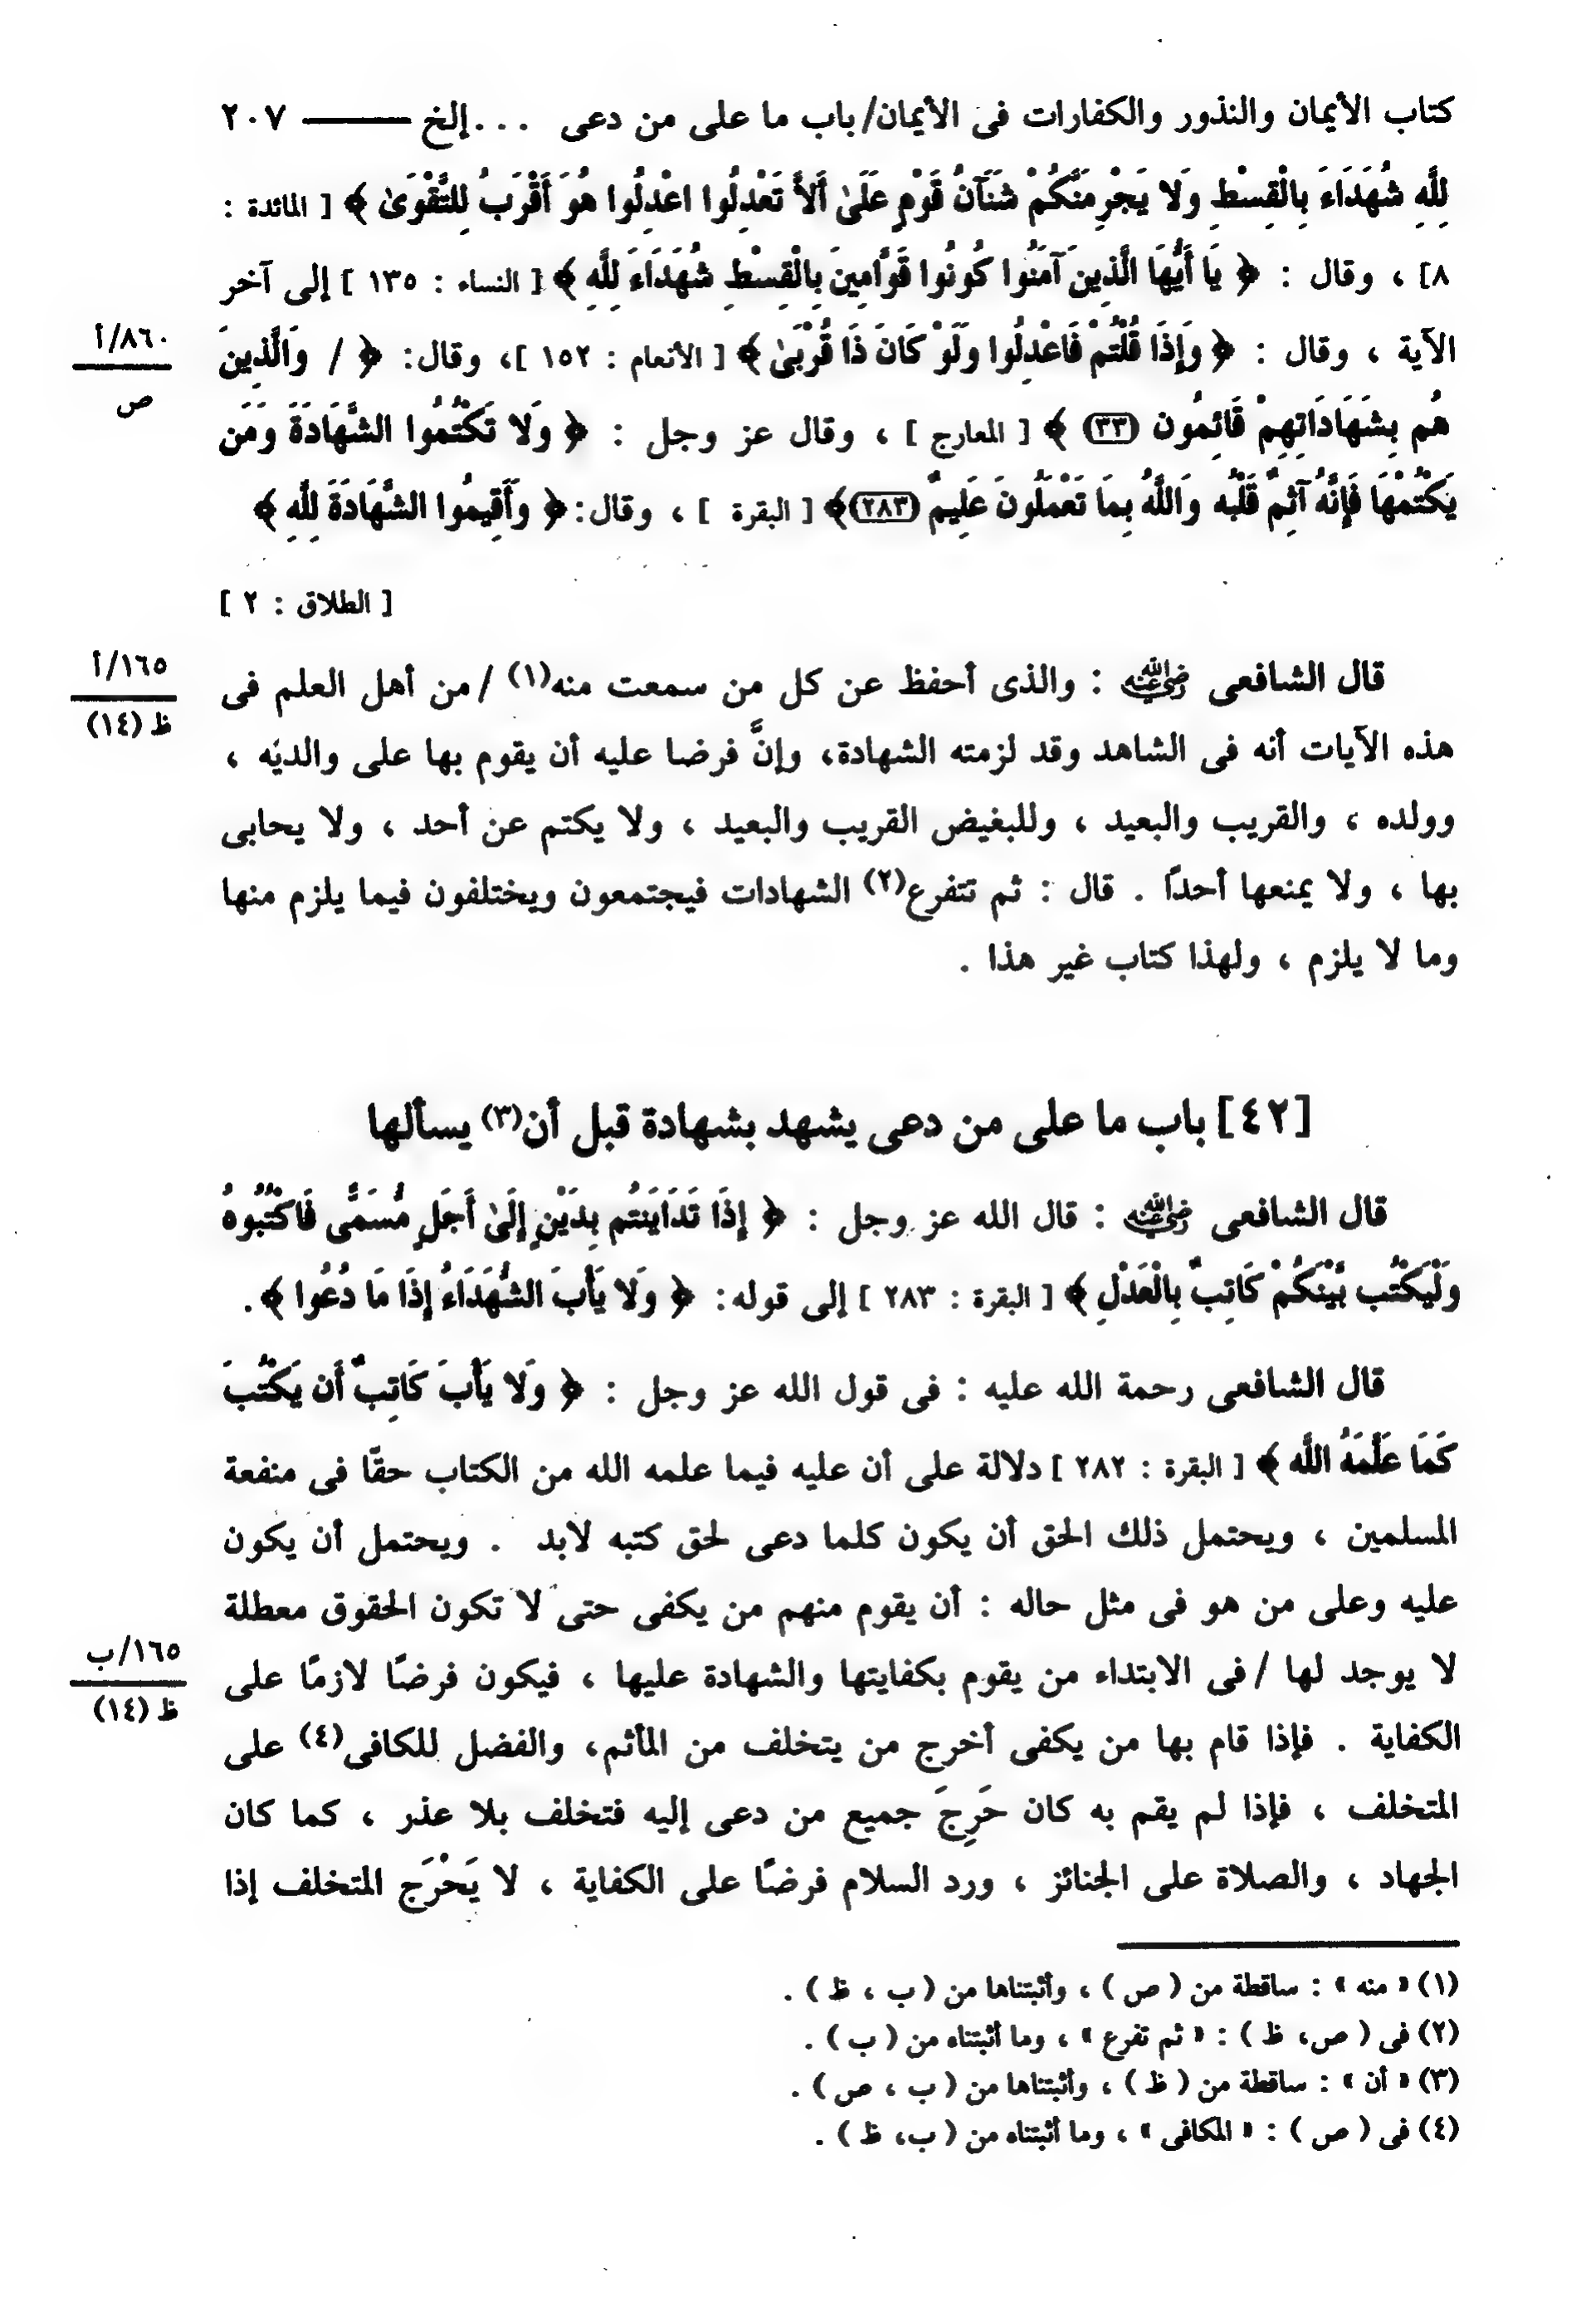 كتاب الأيمان والنذور والكفارات فى الأيمان/ باب ما على من دعى ...إلخ ——— ٢٠٧
لِلَّهِ شُهَدَاءَ بِالْقِسْطِ وَلا يَجْرِمَنَّكُمْ شَنَآنُ قَوْمٍ عَلَىٰ أَلاَّ تَعْدِلُوا اعْدِلُوا هُوَ أَقْرَبُ لِلتَّقْوَىٰ ﴾ [ المائدة :
٨] ، وقال : ﴿ يَا أَيُّهَا الَّذِينَ آمَنُوا كُونُوا قَوَّامِينَ بِالْقِسْطِ شُهَدَاءَ لِلَّهِ ﴾ [ النساء : ١٣٥ ] إلى آخر
الآية ، وقال : ﴿ وَإِذَا قُلْتُمْ فَاعْدِلُوا وَلَوْ كَانَ ذَا قُرْبَىٰ ﴾ [ الأنعام : ١٥٢ ]، وقال: ﴿ / وَالَّذِينَ
٨٦٠/أ
ص
هُم بِشَهَادَاتِهِمْ قَائِمُون (٣٣) ﴾ [ المعارج ] ، وقال عز وجل : ﴿ وَلا تَكْتُمُوا الشَّهَادَةَ وَمَن
يَكْتُمْهَا فَإِنَّهُ آثِمٌ قَلْبُه وَاللَّهُ بِمَا تَعْمَلُونَ عَلِيمٌ (٢٨٣)﴾ [ البقرة ] ، وقال:﴿ وَأَقِيمُوا الشَّهَادَةَ لِلَّهِ ﴾
[ الطلاق : ٢ ]
قال الشافعى رضي الله عنه : والذى أحفظ عن كل من سمعت منه(١) / من أهل العلم فى
١٦٥/أ
ظ (١٤)
هذه الآيات أنه فى الشاهد وقد لزمته الشهادة، وإنَّ فرضا عليه أن يقوم بها على والديه ،
وولده ، والقريب والبعيد ، وللبغيض القريب والبعيد ، ولا يكتم عن أحد ، ولا يحابى
بها ، ولا يمنعها أحدًا . قال : ثم تتفرع(٢) الشهادات فيجتمعون ويختلفون فيما يلزم منها
وما لا يلزم ، ولهذا كتاب غير هذا .
[٤٢] باب ما على من دعى يشهد بشهادة قبل أن(٣) يسألها
قال الشافعى رضي الله عنه : قال الله عز وجل : ﴿ إِذَا تَدَايَنتُم بِدَيْنٍ إِلَىٰ أَجَلٍ مُّسَمًّى فَاكْتُبُوهُ
وَلْيَكْتُب بَّيْنَكُمْ كَاتِبٌ بِالْعَدْلِ ﴾ [ البقرة : ٢٨٣ ] إلى قوله: ﴿ وَلا يَأْبَ الشُّهَدَاءُ إِذَا مَا دُعُوا ﴾.
قال الشافعى رحمة الله عليه : فى قول الله عز وجل : ﴿ وَلا يَأْبَ كَاتِبٌ أَن يَكْتُبَ
كَمَا عَلَّمَهُ اللَّه ﴾ [ البقرة : ٢٨٢ ] دلالة على أن عليه فيما علمه الله من الكتاب حقًا فى منفعة
المسلمين ، ويحتمل ذلك الحق أن يكون كلما دعى لحق كتبه لابد . ويحتمل أن يكون
عليه وعلى من هو فى مثل حاله : أن يقوم منهم من يكفى حتى لا تكون الحقوق معطلة
لا يوجد لها / فى الابتداء من يقوم بكفايتها والشهادة عليها ، فيكون فرضًا لازمًا على
١٦٥/ب
ظ (١٤)
الكفاية . فإذا قام بها من يكفى أخرج من يتخلف من المأثم، والفضل للكافى(٤) على
المتخلف ، فإذا لم يقم به كان حَرِجَ جميع من دعى إليه فتخلف بلا عذر ، كما كان
الجهاد ، والصلاة على الجنائز ، ورد السلام فرضًا على الكفاية ، لا يَحْرَج المتخلف إذا
(١) « منه » : ساقطة من ( ص ) ، وأثبتناها من ( ب ، ظ ) .
(٢) فى ( ص، ظ ) : « ثم تفرع » ، وما أثبتناه من ( ب ) .
(٣) « أن » : ساقطة من ( ظ ) ، وأثبتناها من ( ب ، ص ) .
(٤) فى ( ص ) : « المكافى » ، وما أثبتناه من ( ب، ظ ) .